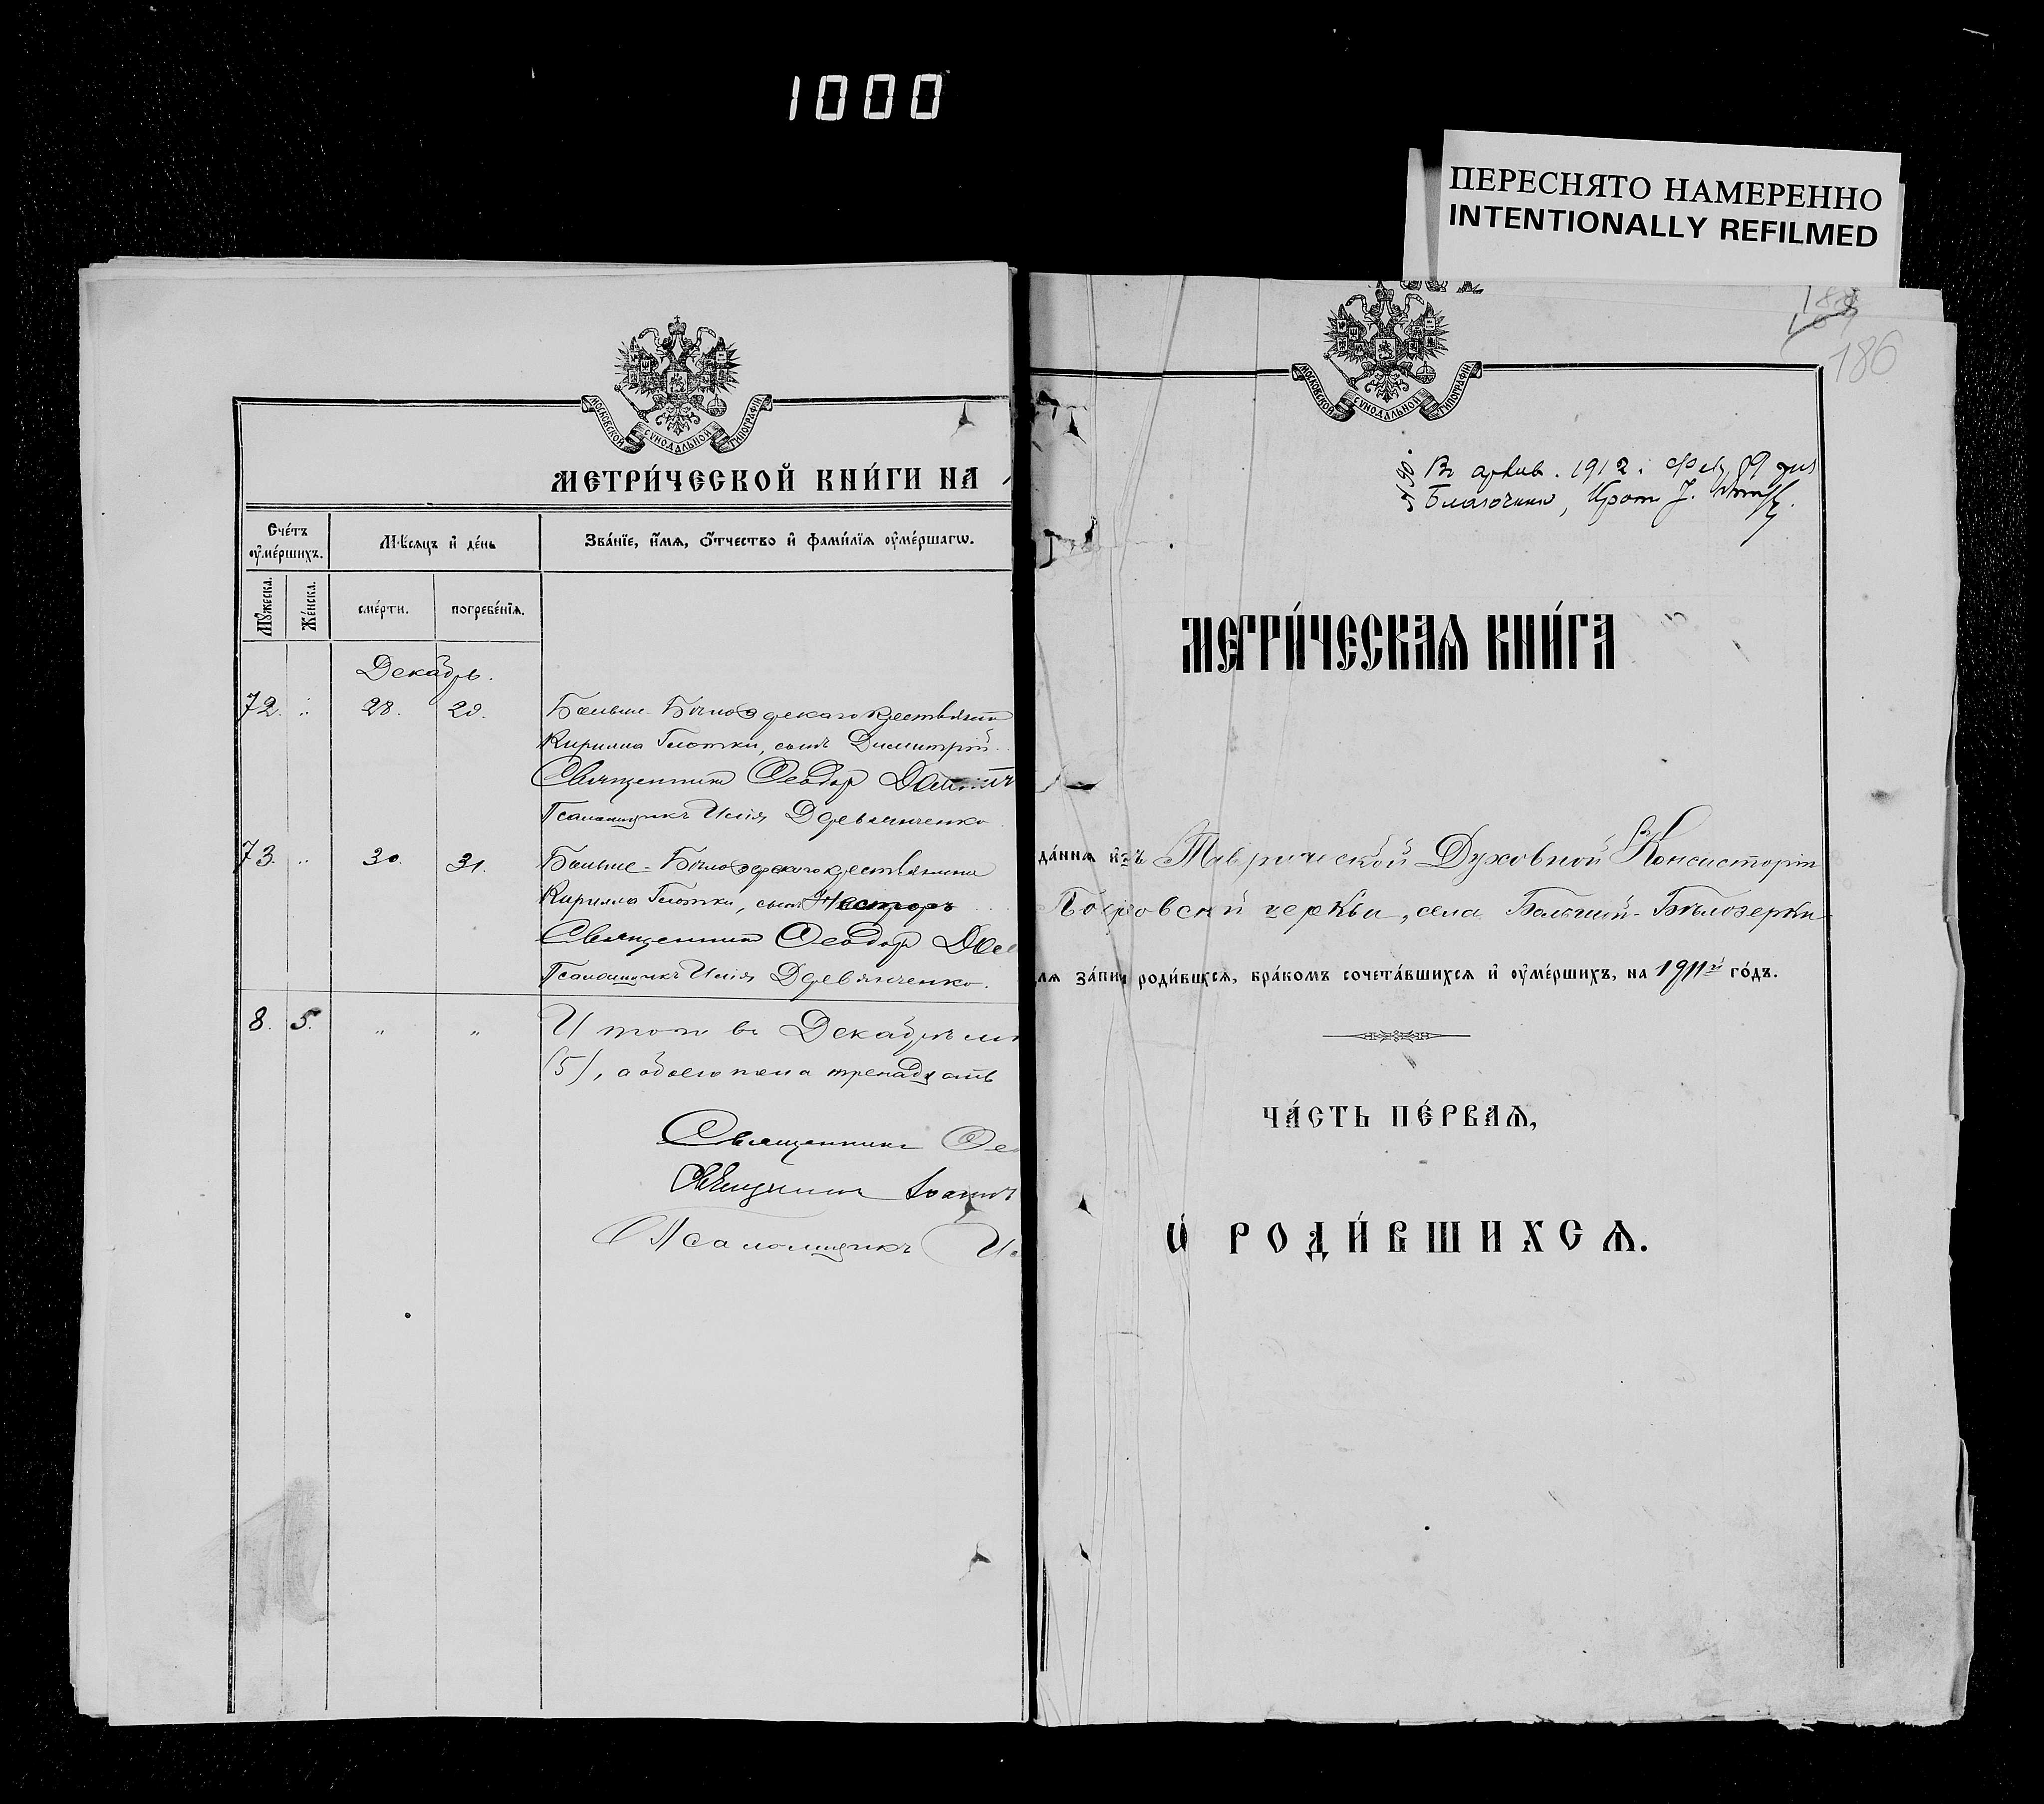 1000
ПЕРЕСНЯТО НАМЕРЕННО
INTENTIONALLY REFILMED
МОСКОВСКОЙ СѴНОДАЛЬНОЙ ТИПОГРАФІИ
МЕТРИ́ЧЕСКОЙ КНИ́ГИ НА
Сче́тъ оумéршихъ.
Мѣ́сяцъ и де́нь
Зва́нїе, и́мя, ѻ҆́тчество и фами́лїя оумéршагѡ.
Мꙋ́жеска.
Же́нска.
сме́рти.
погребе́нїя.
Декабрь.
72. „ 28. 29. Больше-Бѣлозерскаго крестьянина
Кирилла Глотки, сынъ Димитрій.
Священникъ Ѳеодоръ
Псаломщикъ Илія Деревянченко.
73. „ 30. 31. Больше-Бѣлозерскаго крестьянина
Кирилла Глотки, сынъ Несторъ
Священникъ Ѳеодоръ
Псаломщикъ Илія Деревянченко.
8. 5. „ „ Итого въ Декабрѣ
(5), а обоего пола тринадцать
Священникъ Ѳео
Священникъ Іоаннъ
Псаломщикъ
186
МОСКОВСКОЙ СѴНОДАЛЬНОЙ ТИПОГРАФІИ
№ 90. Въ архивъ. 1912. Фев. 09 дня
Благочинный, Прот. І.
МЕТРИ́ЧЕСКАѦ КНИ́ГА
да́нная и҆зъ Таврической Духовной Консисторіи
Покровской церкви, села Большой-Бѣлозерки
ля за́писи роди́вшихся, бра́комъ сочета́вшихся и оумéршихъ, на 1911й го́дъ.
ЧА́СТЬ ПЕ́РВАѦ,
Ѡ РОДИ́ВШИХСѦ.